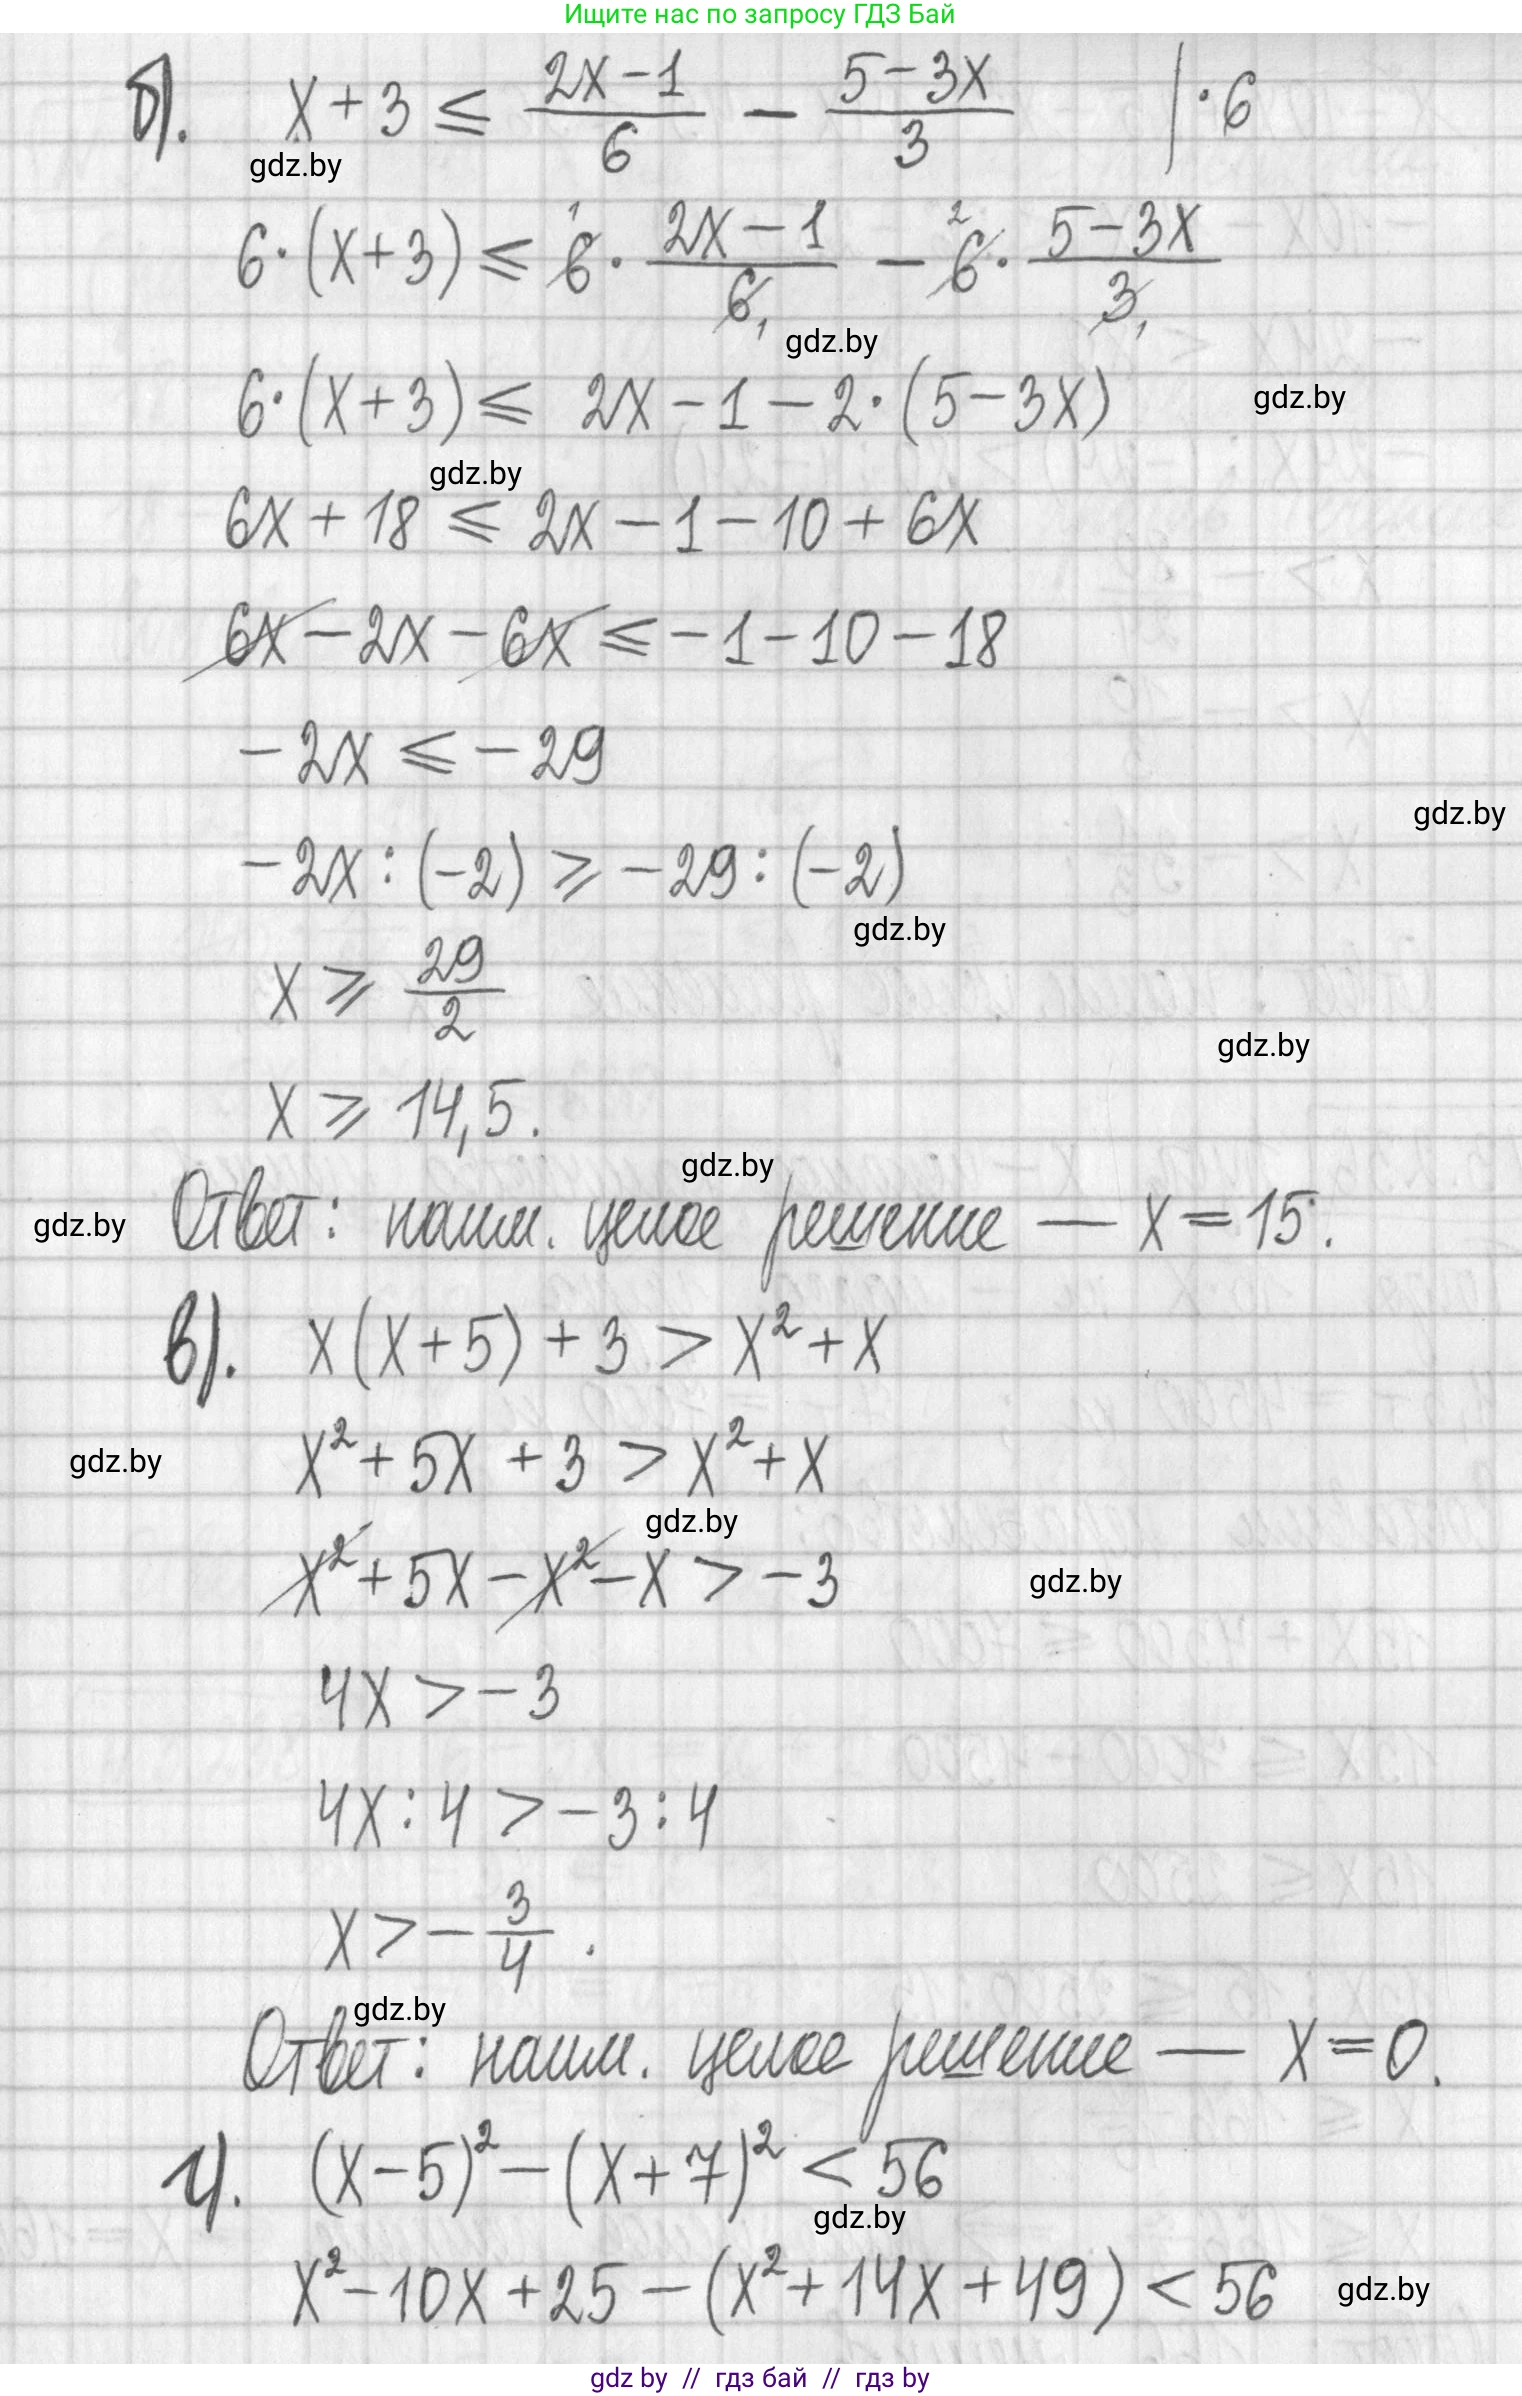 Ищите нас по запросу ГДЗ Бай
б). x + 3 ≤ (2x − 1)/6 − (5 − 3x)/3 | · 6
gdz.by
6 · (x + 3) ≤ 6¹ · (2x − 1)/6₁ − 6² · (5 − 3x)/3₁
gdz.by
6 · (x + 3) ≤ 2x − 1 − 2 · (5 − 3x) gdz.by
gdz.by
6x + 18 ≤ 2x − 1 − 10 + 6x
6x − 2x − 6x ≤ − 1 − 10 − 18
− 2x ≤ − 29
gdz.by
− 2x : (−2) ≥ − 29 : (−2)
gdz.by
x ≥ 29/2
gdz.by
x ≥ 14,5.
gdz.by
gdz.by Ответ: наим. целое решение — x = 15.
в). x(x + 5) + 3 > x² + x
gdz.by x² + 5x + 3 > x² + x
gdz.by
x² + 5x − x² − x > − 3 gdz.by
4x > − 3
4x : 4 > − 3 : 4
x > − 3/4.
gdz.by
Ответ: наим. целое решение — x = 0.
г). (x − 5)² − (x + 7)² < 56
gdz.by
x² − 10x + 25 − (x² + 14x + 49) < 56 gdz.by
gdz by // гдз бай // гдз by